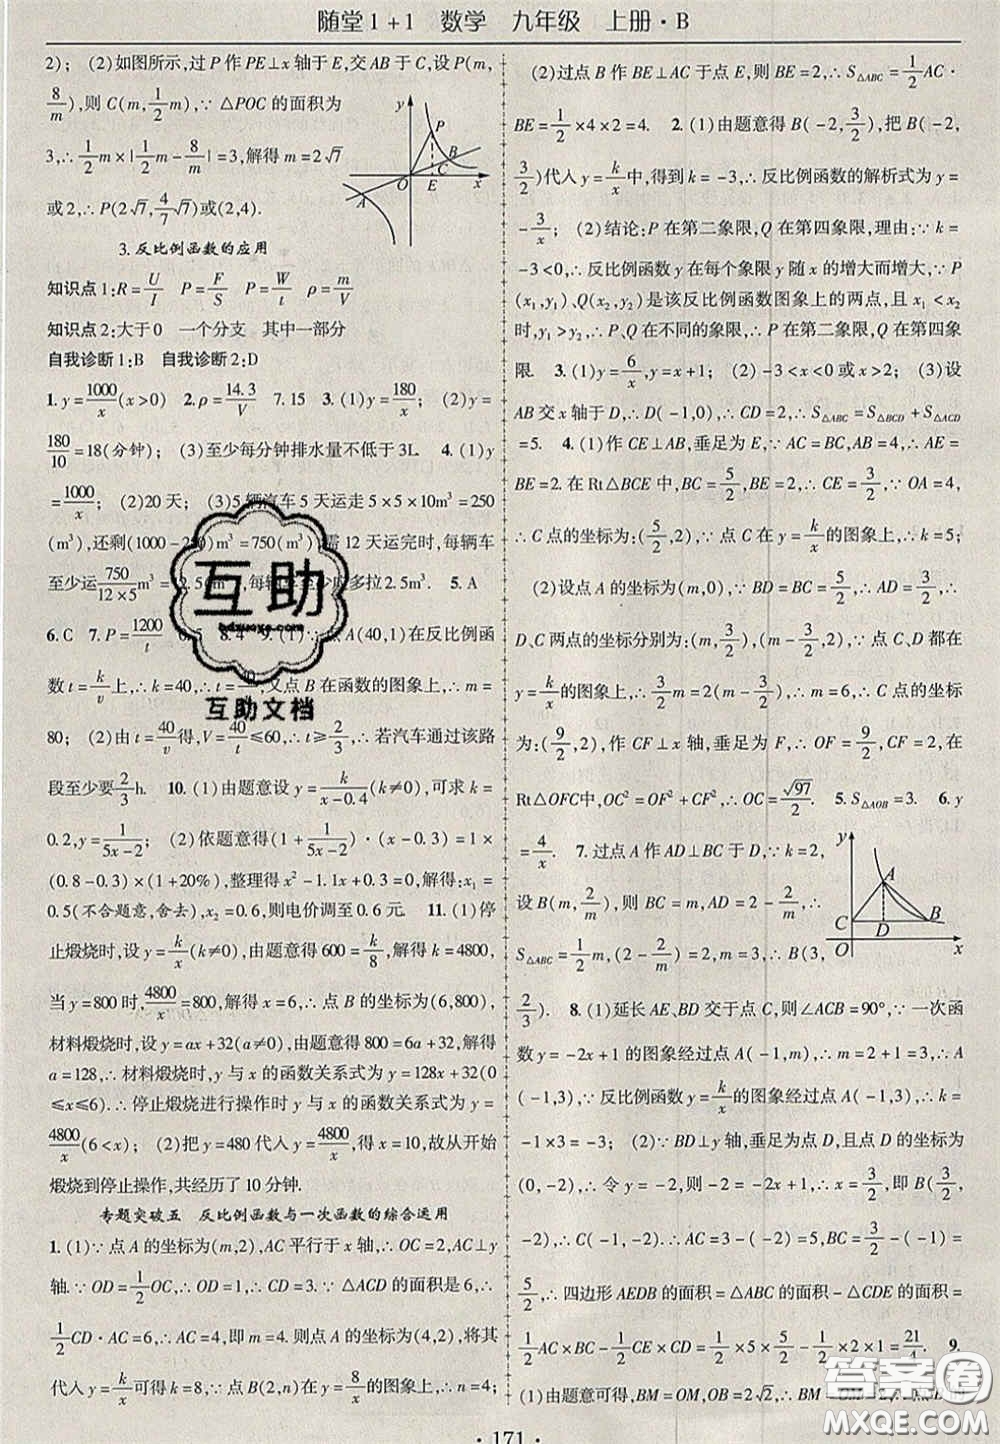 随堂1+1 数学 九年级 上册·B
2); (2)如图所示,过P作PE⊥x轴于E,交AB于C,设P(m,
8/m),则C(m,1/2m),∵△POC的面积为
3,∴1/2m×|1/2m-8/m|=3,解得m=2√7
或2,∴P(2√7,4/7√7)或(2,4).
y P B C O E x A
3.反比例函数的应用
知识点1:R=U/I P=F/S P=W/t ρ=m/V
知识点2:大于0 一个分支 其中一部分
自我诊断1:B 自我诊断2:D
1.y=1000/x(x>0) 2.ρ=14.3/V 7.15 3.(1)y=180/x; (2)y=
180/10=18(分钟); (3)至少每分钟排水量不低于3L. 4.(1)y
=1000/x; (2)20天; (3)5辆汽车5天运走5×5×10m³=250
(m³),还剩(1000-250)m³=750(m³) 需12天运完时,每辆车
至少运750/(12×5)m³= 2.5(m³),每辆车至少 多拉2.5m³. 5.A
6.C 7.P=1200/t 8.4 9.(1)∵点A(40,1)在反比例函
数t=k/v上,∴k=40,∴t=40/ ,又点B在函数的图象上,∴m=
80; (2)由t=40/v得,V=40/t≤60,∴t≥2/3,∴若汽车通过该路
段至少要2/3h. 10.(1)由题意设y=k/(x-0.4)(k≠0),可求k=
0.2,y=1/(5x-2); (2)依题意得(1+1/(5x-2))·(x-0.3)=1×
(0.8-0.3)×(1+20%),整理得x²-1.1x+0.3=0,解得:x₁=
0.5(不合题意,舍去),x₂=0.6,则电价调至0.6元. 11.(1)停
止煅烧时,设y=k/x(k≠0),由题意得600=k/8,解得k=4800,
当y=800时,4800/x=800,解得x=6,∴点B的坐标为(6,800),
材料煅烧时,设y=ax+32(a≠0),由题意得800=6a+32,解得
a=128,∴材料煅烧时,y与x的函数关系式为y=128x+32(0
≤x≤6).∴停止煅烧进行操作时y与x的函数关系式为y=
4800/x(6<x); (2)把y=480代入y=4800/x,得x=10,故从开始
煅烧到停止操作,共经历了10分钟.
专题突破五 反比例函数与一次函数的综合运用
1.(1)∵点A的坐标为(m,2),AC平行于x轴,∴OC=2,AC⊥y
轴.∵OD=1/2OC,∴OD=1,∴CD=3.∵△ACD的面积是6,∴
1/2CD·AC=6,∴AC=4,即m=4.则点A的坐标为(4,2),将其
代入y=k/x可得k=8,∵点B(2,n)在y=8/x的图象上,∴n=4;
(2)过点B作BE⊥AC于点E,则BE=2,∴S△ABC=1/2AC·
BE=1/2×4×2=4. 2.(1)由题意得B(-2,3/2),把B(-2,
3/2)代入y=k/x中,得到k=-3,∴反比例函数的解析式为y=
-3/x; (2)结论:P在第二象限,Q在第四象限,理由:∵k=
-3<0,∴反比例函数y在每个象限y随x的增大而增大,∵P
(x₁,y₁)、Q(x₂,y₂)是该反比例函数图象上的两点,且x₁<x₂
时,y₁>y₂,∴P、Q在不同的象限,∴P在第二象限,Q在第四象
限. 3.(1)y=6/x,y=x+1; (2)-3<x<0或x>2; (3)设
AB交x轴于D,∴D(-1,0),∴CD=2,∴S△ABC=S△BCD+S△ACD
=5. 4.(1)作CE⊥AB,垂足为E,∵AC=BC,AB=4,∴AE=
BE=2.在Rt△BCE中,BC=5/2,BE=2,∴CE=3/2,∵OA=4,
∴C点的坐标为:(5/2,2),∵点C在y=k/x的图象上,∴k=5;
(2)设点A的坐标为(m,0),∵BD=BC=5/2,∴AD=3/2,∴
D、C两点的坐标分别为:(m,3/2),(m-3/2,2),∵点C、D都在
y=k/x的图象上,∴3/2m=2(m-3/2),∴m=6,∴C点的坐标
为:(9/2,2),作CF⊥x轴,垂足为F,∴OF=9/2,CF=2,在
Rt△OFC中,OC²=OF²+CF²,∴OC=√97/2. 5.S△AOB=3. 6.y
=4/x. 7.过点A作AD⊥BC于D,∵k=2,
设B(m,2/m),则BC=m,AD=2-2/m,∵
S△ABC=1/2m,(2-2/m)=2,m=3,∴B(3,
y A C D B O x
2/3). 8.(1)延长AE、BD交于点C,则∠ACB=90°,∵一次函
数y=-2x+1的图象经过点A(-1,m),∴m=2+1=3,∴A
(-1,3),∵反比例函数y=k/x的图象经过A(-1,3),∴k=
-1×3=-3; (2)∵BD⊥y轴,垂足为点D,且点D的坐标为
(0,-2),∴令y=-2,则-2=-2x+1,∴x=3/2,即B(3/2,
-2),∴C(-1,-2),∴AC=3-(-2)=5,BC=3/2-(-1)=
5/2,∴四边形AEDB的面积=△ABC的面积-△CDE的面积=
1/2AC×BC-1/2CE×CD=1/2×5×5/2-1/2×2×1=21/4. 9.
(1)由题意可得,BM=OM,OB=2√2,∴BM=OM=2,
·171·
互助
互助文档
答案圈
MXQE.COM